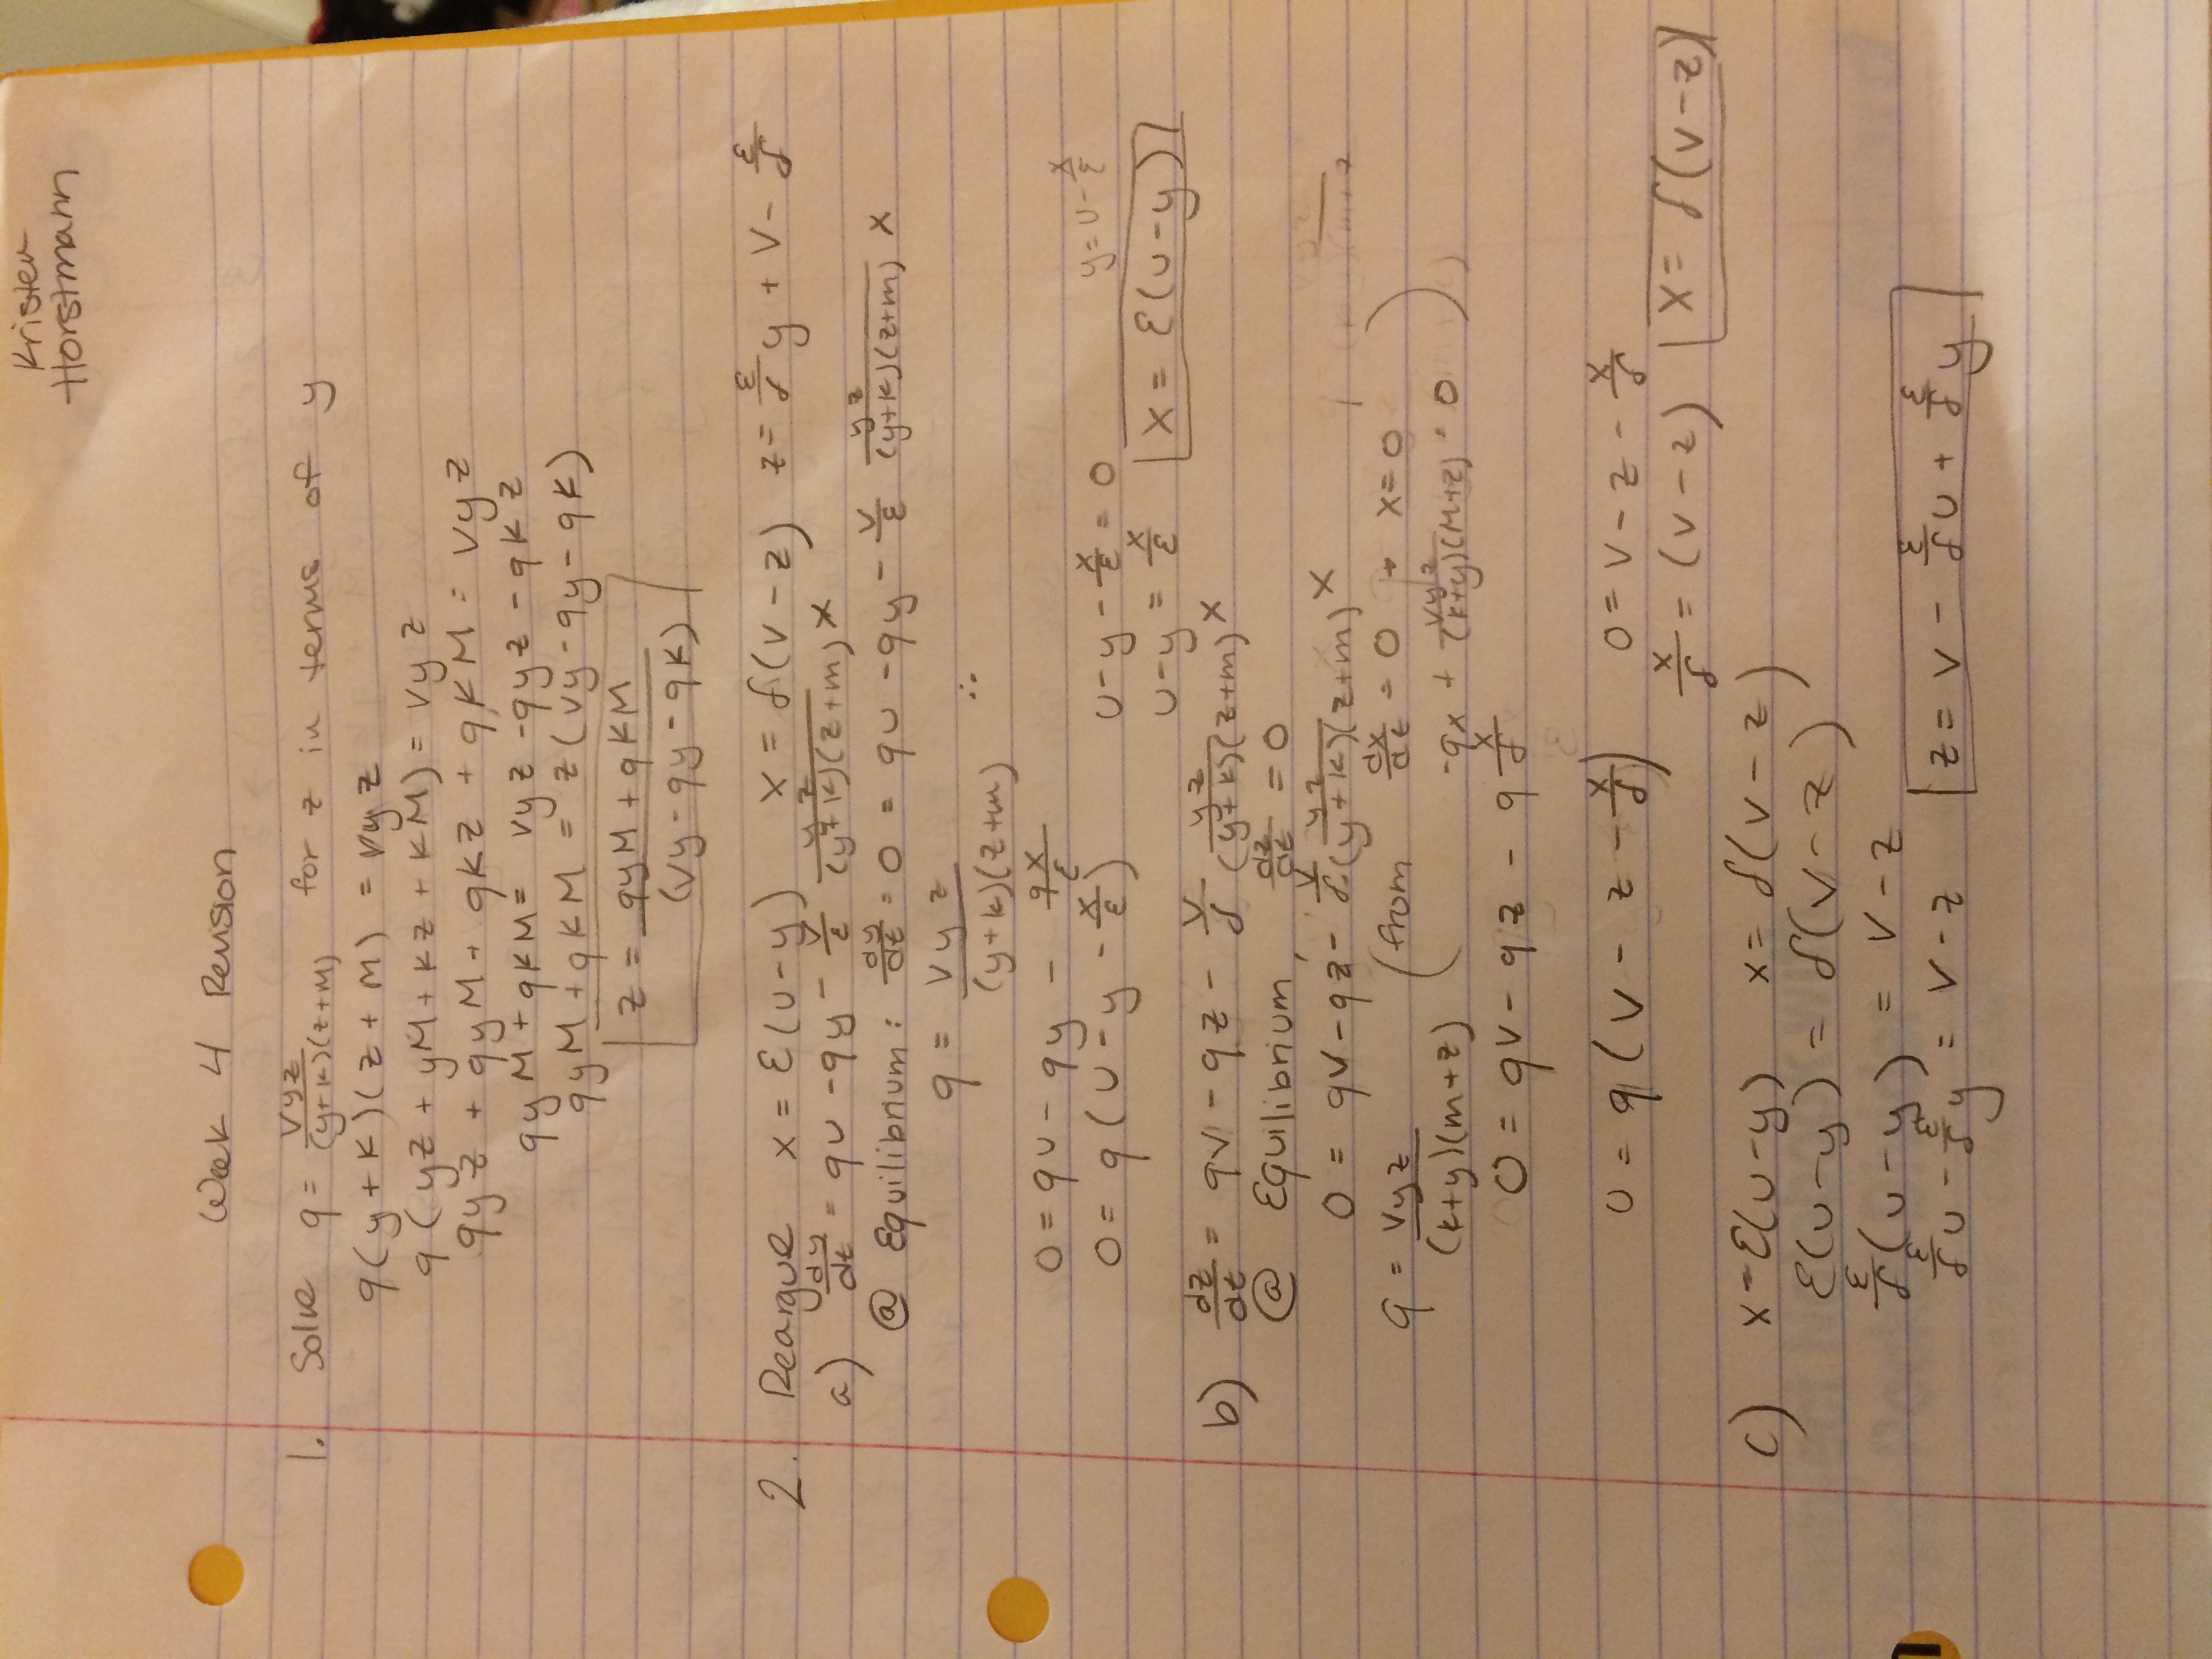 Kristen
Horstmann
Week 4 Revision
1. Solve q = Vyz/(y+k)(z+m) for z in terms of y
q(y+k)(z+M) = Vyz
q(yz + yM + kz + kM) = Vyz
qyz + qyM + qkz + qkM = Vyz
qyM + qkM = Vyz - qyz - qkz
qyM + qkM = z(Vy - qy - qk)
z = qyM + qkM/(Vy - qy - qk)
2. Reargue x = ε(u-y) x = δ(v-z) z = ε/δ y + v - ε/δ
a) dy/dt = qu - qy - V/ε yz/(y+k)(z+m) x
@ Equilibrium: dy/dt = 0 = qu - qy - V/ε yz/(y+k)(z+m) x
q = Vyz/(y+k)(z+m) ∴
0 = qu - qy - qx/ε
y = u - x/ε
0 = q(u - y - x/ε) u - y - x/ε = 0
u - y = x/ε x = ε(u-y)
b) dz/dt = qv - qz - V/δ yz/(y+k)(z+m) x
@ Equilibrium, dz/dt = 0
0 = qv - qz - V/δ yz/(y+k)(z+m) x
q = Vyz/(k+y)(m+z) (from dx/dt = 0 + x = 0
-qx + Vyz/(k+y)(M+z) = 0)
0 = qv - qz - q x/δ
0 = q(v - z - x/δ) 0 = v - z - x/δ
x/δ = (v-z) x = δ(v-z)
c) x = ε(u-y) x = δ(v-z)
ε(u-y) = δ(v-z)
ε/δ(u-y) = v-z
ε/δ u - ε/δ y = v-z z = v - ε/δ u + ε/δ y